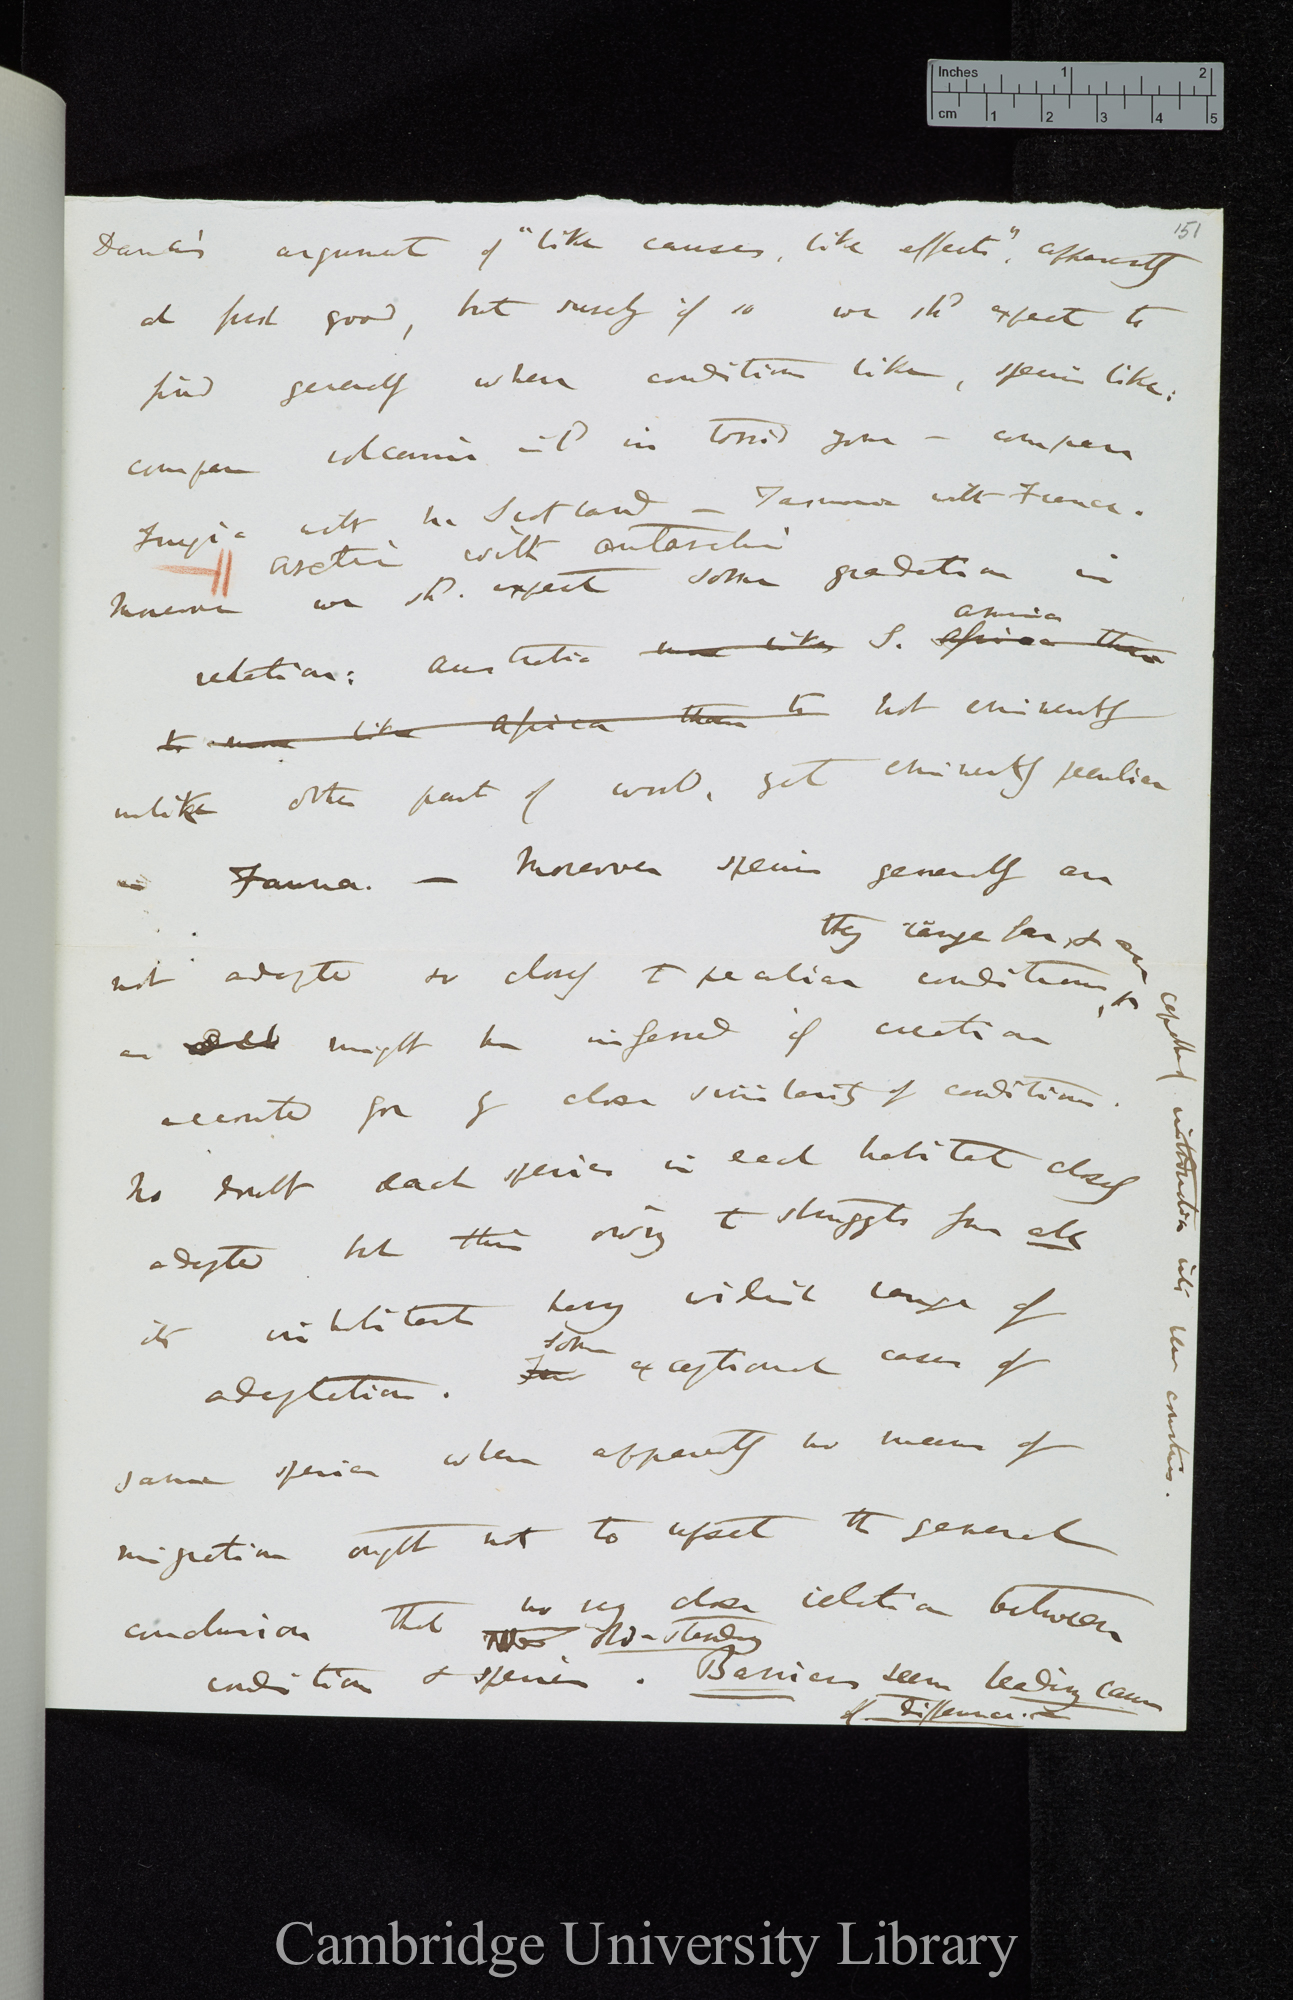 Inches 1 2
cm 1 2 3 4 5
151
Dana's argument of "like causes, like effects", apparently
at first good, but surely if so we shd expect to
find generally where conditions like, species like:
compare volcanic isld in torrid zone — compare
Fuegia with Scotland — Tasmania with France.
arctic with antarctic
Moreover we shd. expect some gradation in
america
relation: Australia more like S. Africa than
to more like Africa than to not eminently
unlike other part of world, yet eminently peculiar
in Fauna. — Moreover species generally are
they range far, & are capable of introduction into new countries.
not adapted so closely to peculiar conditions,
as might be inferred if creation
accounted for by close similarity of conditions.
No doubt each species in each habitat closely
adapted but this owing to struggle from all
its inhabitants having widish range of
adaptation. Some exceptional cases of
same species when apparently no means of
migration ought not to upset the general
conclusion that no very close relation between
old-standing
condition & species. Barriers seem leading cause
of difference.—
Cambridge University Library